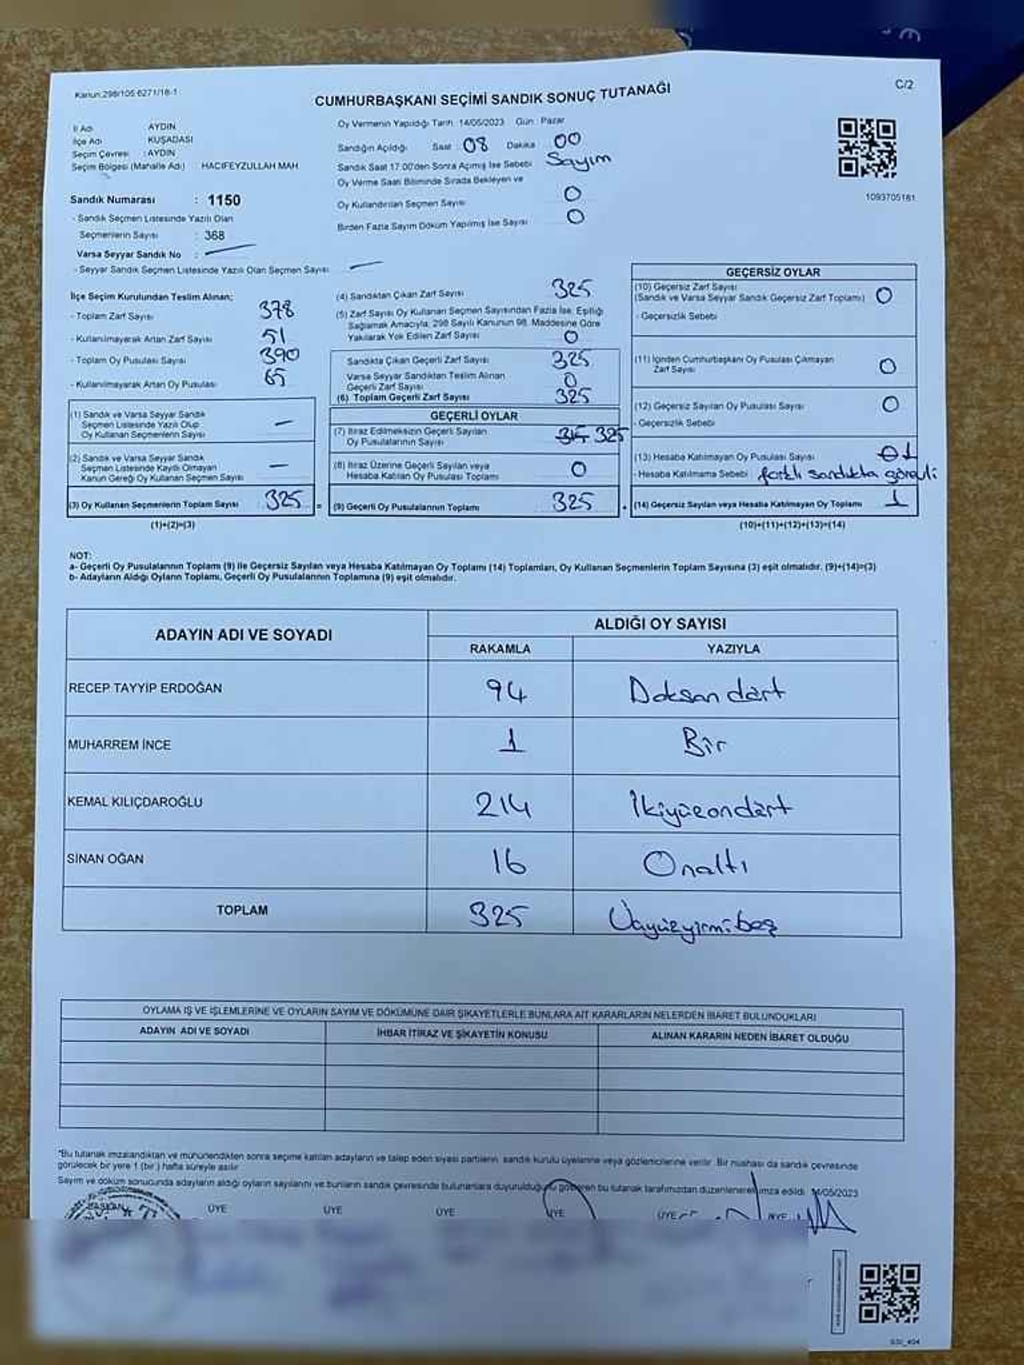 Kanun:298/105 6271/18-1
C/2
CUMHURBAŞKANI SEÇİMİ SANDIK SONUÇ TUTANAĞI
İl Adı AYDIN
İlçe Adı KUŞADASI
Seçim Çevresi : AYDIN
Seçim Bölgesi (Mahalle Adı) HACIFEYZULLAH MAH
Sandık Numarası : 1150
- Sandık Seçmen Listesinde Yazılı Olan
Seçmenlerin Sayısı : 368
Varsa Seyyar Sandık No :
- Seyyar Sandık Seçmen Listesinde Yazılı Olan Seçmen Sayısı
Oy Vermenin Yapıldığı Tarih :14/05/2023 Gün : Pazar
Sandığın Açıldığı Saat 08 Dakika 00
Sandık Saat 17.00'den Sonra Açımış İse Sebebi Sayım
Oy Verme Saati Bitiminde Sırada Bekleyen ve
Oy Kullandırılan Seçmen Sayısı 0
Birden Fazla Sayım Döküm Yapılmış İse Sayısı 0
1093705181
İlçe Seçim Kurulundan Teslim Alınan;
- Toplam Zarf Sayısı 378
- Kullanılmayarak Artan Zarf Sayısı 51
- Toplam Oy Pusulası Sayısı 390
- Kullanılmayarak Artan Oy Pusulası 65
(1) Sandık ve Varsa Seyyar Sandık
Seçmen Listesinde Yazılı Olup
Oy Kullanan Seçmenlerin Sayısı —
(2) Sandık ve Varsa Seyyar Sandık
Seçmen Listesinde Kayıtlı Olmayan
Kanun Gereği Oy Kullanan Seçmen Sayısı —
(3) Oy Kullanan Seçmenlerin Toplam Sayısı 325 =
(1)+(2)=(3)
(4) Sandıktan Çıkan Zarf Sayısı 325
(5) Zarf Sayısı Oy Kullanan Seçmen Sayısından Fazla İse, Eşitliği
Sağlamak Amacıyla; 298 Sayılı Kanunun 98. Maddesine Göre
Yakılarak Yok Edilen Zarf Sayısı 0
Sandıkta Çıkan Geçerli Zarf Sayısı 325
Varsa Seyyar Sandıktan Teslim Alınan
Geçerli Zarf Sayısı 0
(6) Toplam Geçerli Zarf Sayısı 325
GEÇERLİ OYLAR
(7) İtiraz Edilmeksizin Geçerli Sayılan
Oy Pusulalarının Sayısı 315 325
(8) İtiraz Üzerine Geçerli Sayılan veya
Hesaba Katılan Oy Pusulası Toplamı 0
(9) Geçerli Oy Pusulalarının Toplamı 325
GEÇERSİZ OYLAR
(10) Geçersiz Zarf Sayısı
(Sandık ve Varsa Seyyar Sandık Geçersiz Zarf Toplamı) 0
- Geçersizlik Sebebi
(11) İçinden Cumhurbaşkanı Oy Pusulası Çıkmayan
Zarf Sayısı 0
(12) Geçersiz Sayılan Oy Pusulası Sayısı 0
- Geçersizlik Sebebi
(13) Hesaba Katılmayan Oy Pusulası Sayısı 0 1
- Hesaba Katılmama Sebebi farklı sandıkta görevli
(14) Geçersiz Sayılan veya Hesaba Katılmayan Oy Toplamı 1
(10)+(11)+(12)+(13)=(14)
NOT:
a- Geçerli Oy Pusulalarının Toplamı (9) ile Geçersiz Sayılan veya Hesaba Katılmayan Oy Toplamı (14) Toplamları, Oy Kullanan Seçmenlerin Toplam Sayısına (3) eşit olmalıdır. (9)+(14)=(3)
b- Adayların Aldığı Oyların Toplamı, Geçerli Oy Pusulalarının Toplamına (9) eşit olmalıdır.
ADAYIN ADI VE SOYADI
ALDIĞI OY SAYISI
RAKAMLA YAZIYLA
RECEP TAYYİP ERDOĞAN 94 Doksandört
MUHARREM İNCE 1 Bir
KEMAL KILIÇDAROĞLU 214 İkiyüzondört
SİNAN OĞAN 16 Onaltı
TOPLAM 325 Üçyüzyirmibeş
OYLAMA İŞ VE İŞLEMLERİNE VE OYLARIN SAYIM VE DÖKÜMÜNE DAİR ŞİKAYETLERLE BUNLARA AİT KARARLARIN NELERDEN İBARET BULUNDUKLARI
ADAYIN ADI VE SOYADI İHBAR İTİRAZ VE ŞİKAYETİN KONUSU ALINAN KARARIN NEDEN İBARET OLDUĞU
*Bu tutanak imzalandıktan ve mühürlendikten sonra seçime katılan adayların ve talep eden siyasi partilerin, sandık kurulu üyelerine veya gözlemcilerine verilir. Bir nüshası da sandık çevresinde
görülecek bir yere 1 (bir) hafta süreyle asılır.
Sayım ve döküm sonucunda adayların aldığı oyların sayılarını ve bunların sandık çevresinde bulunanlara duyurulduğunu gösteren bu tutanak tarafımızdan düzenlenerek imza edildi. 14/05/2023
BAŞKAN ÜYE ÜYE ÜYE ÜYE ÜYE ÜYE